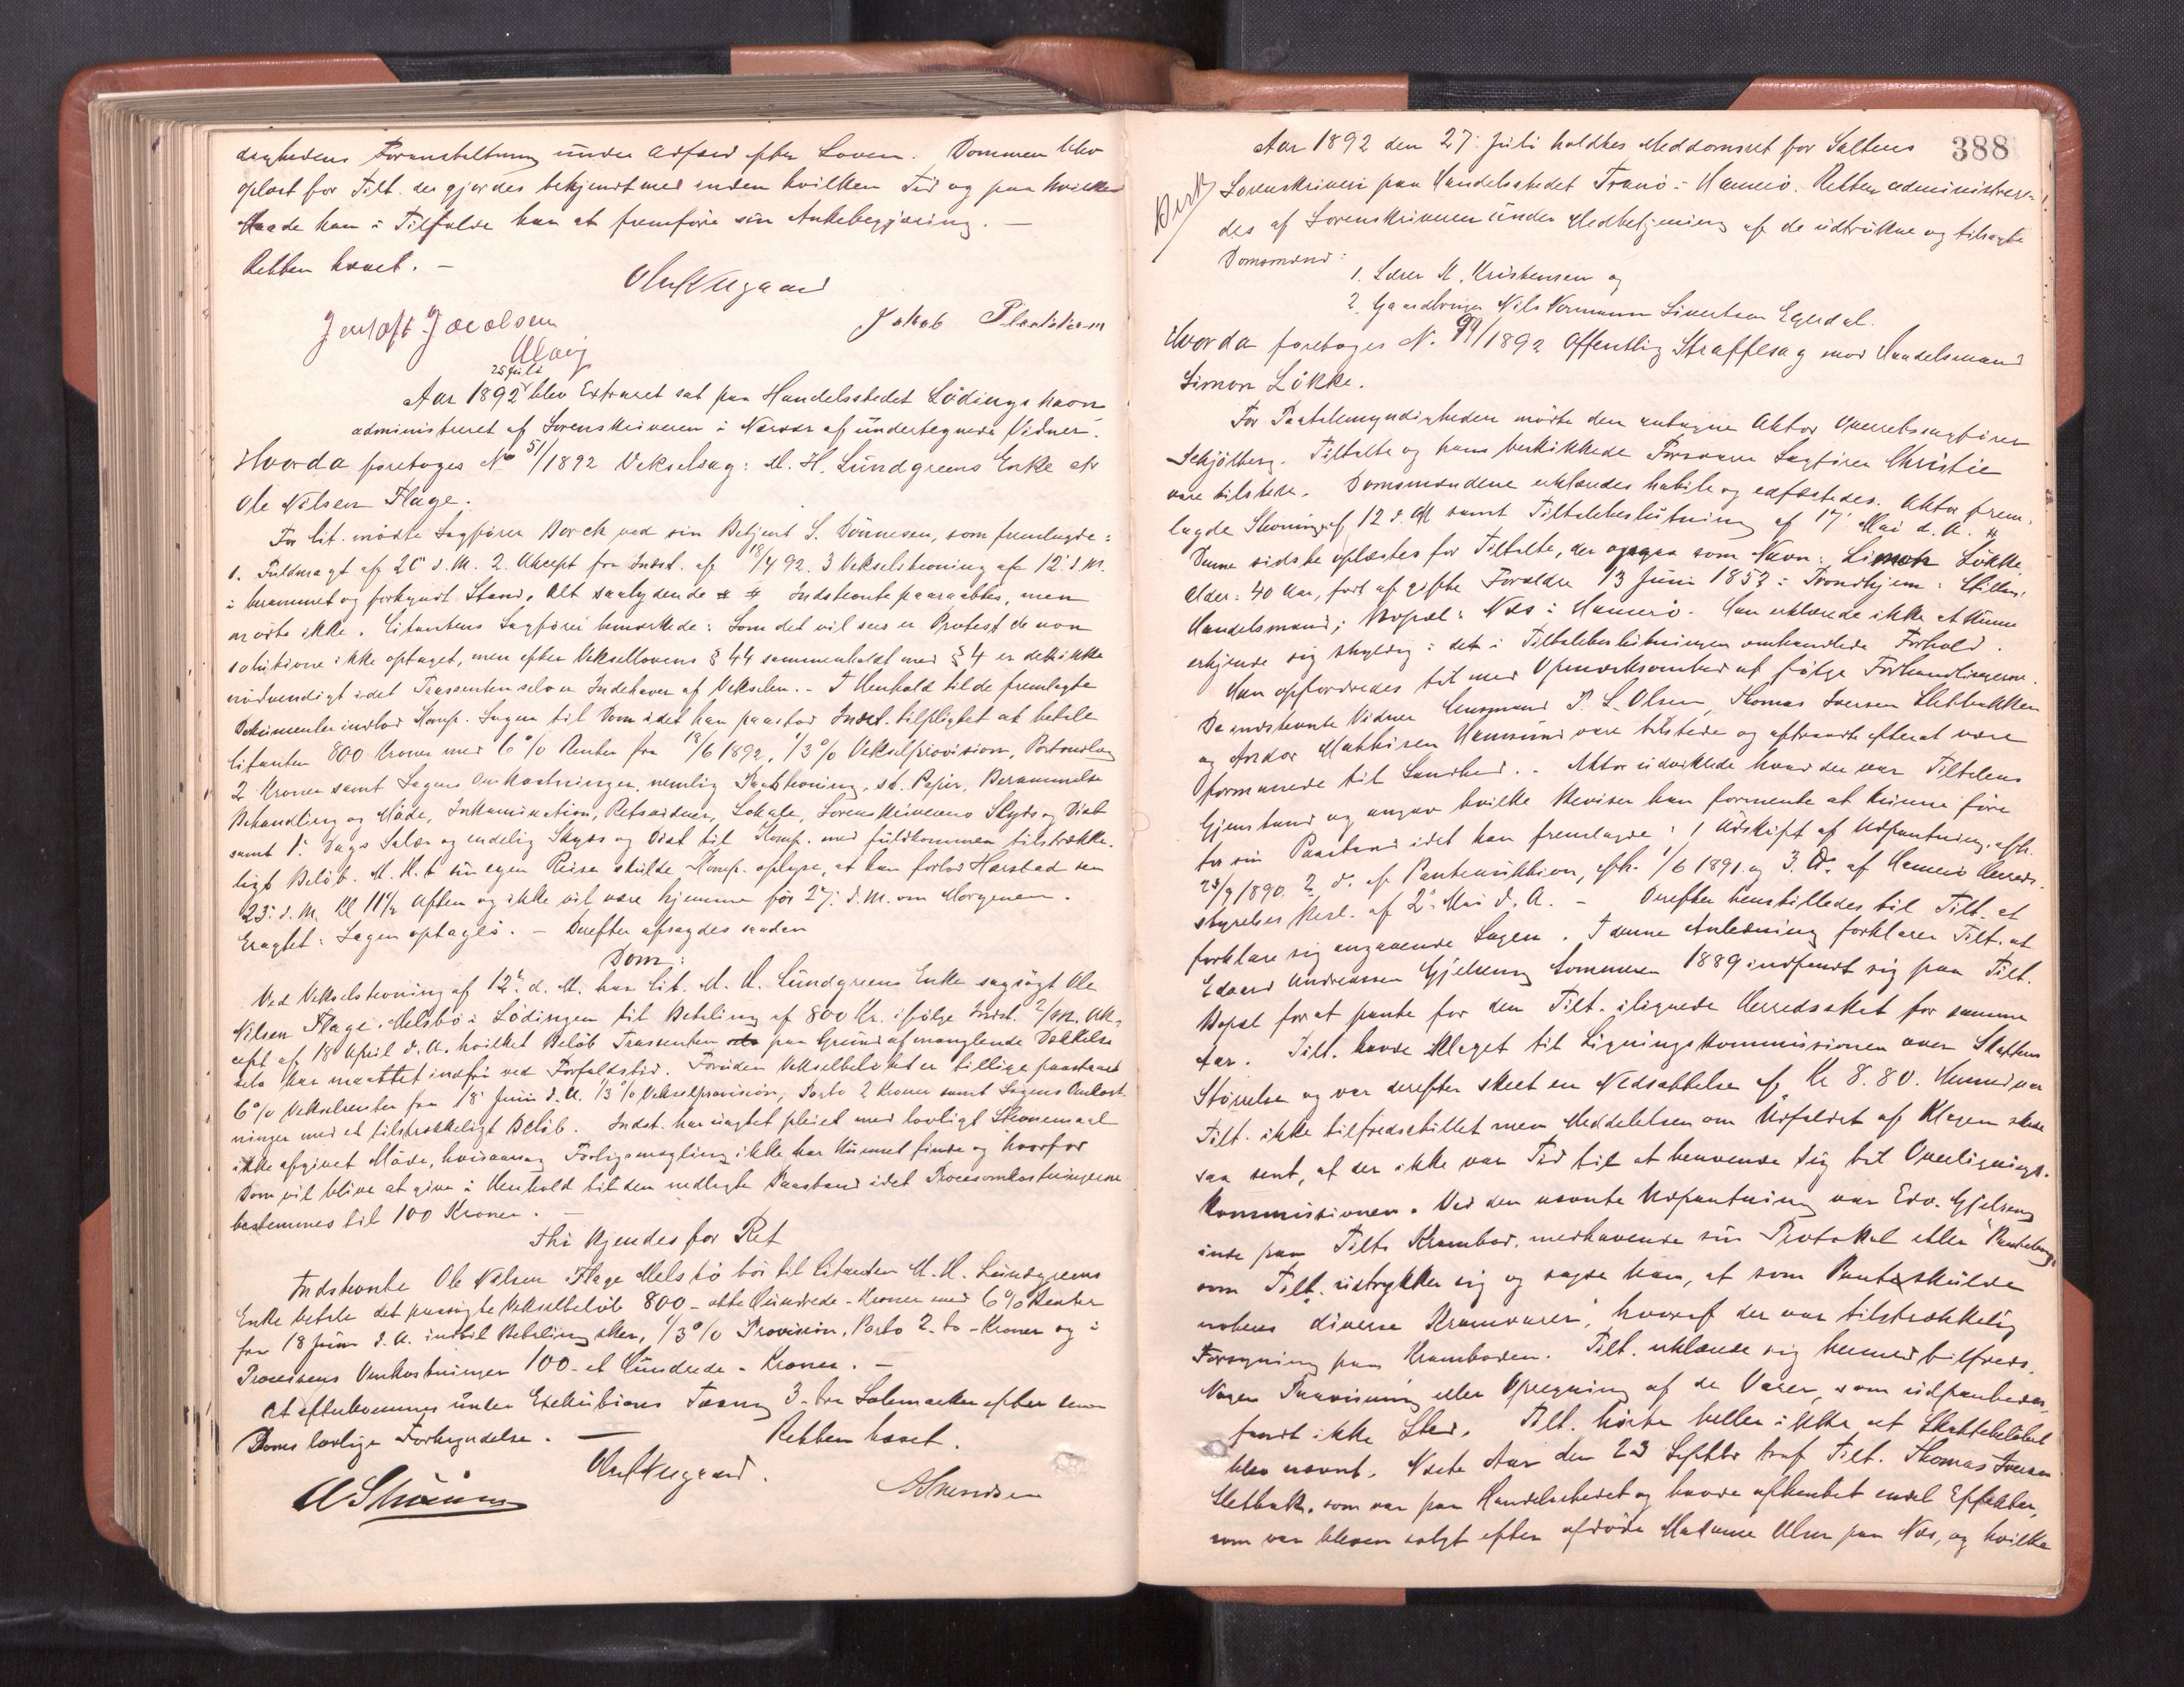 dighedens Foranstaltning under Adfærd efter Loven. Dommen blev
oplæst for Tilt. der gjordes bekjendt med inden hvilken Tid og paa hvilken
Maade han i Tilfælde har at fremføre sin Ankebegjæring. —
Retten hævet. —
Jakob
25 Juli
Aar 1892 blev Extraret sat paa Handelsstedet Lödingshavn
administreret af Sorenskriveren i Nærvær af undertegnede Vidner.
Hvorda foretoges No 51/1892 Vekselsag: M. H. Lundgreens Enke ctr
Ole Nilsen Flage.
For Cit. mödte Sagfører Borch ved sin Betjent S. Tönnesen, som fremlagde:
1. Fuldmagt af 20' d. M. 2. Aksept fra Indst. af 18/4 92. 3 Vekselstevning af 12' d. M.
i berammet og forkyndt Stand, alt saalydende # # Indstevnte paaraabtes, men
mödte ikke. Citantens Sagfører bemærkede: Som det vil sees er Protest de non
solutione ikke optaget, men efter Veksellovens § 44 sammenholdt med § 4 er det ikke
nödvendigt idet Trassenten selv er Indehaver af Vekselen. - I Henhold til de fremlagte
Dokumenter indlod Komp. Sagen til Dom idet han paastod Indst. tilpligtet at betale
Citanten 800 Kroner med 6 % Renter fra 18/6 1892, 1/3 % Vekselprovision, Portoudlæg
2 Kroner samt Sagens Omkostninger, nemlig Stevning, st. Papir, Berammelse
Behandling og Möde, Inkamination, Retsvidner, Lokale, Sorenskriverens Skyds og Diæt
samt 1 Dags Salær og endelig Skyds og Diæt til Komp. med fuldkommen tilstrække-
ligt Belöb. M. H. t. sin egen Reise skulde Komp. oplyse, at han forlod Harstad den
23' d. M. Kl 11 1/2 Aften og ikke vil være hjemme för 27' d. M. om Morgenen.
Eragtet: Sagen optages. - Derefter afsagdes saadan
Dom:
Ved Vekselstevning af 12' d. M. har Cit. M. H. Lundgreens Enke sagsögt Ole
Nilsen Flage, Melsbö i Lödingen til Betaling af 800 Kr. ifölge Indst.
cept af 18 April d. A. hvilket Belöb Trassenten paa Grund af manglende Dækkelse
selv har maattet indfri ved Forfaldstid. Foruden Vekselbelöbet er tillige paastaaet
6 % Vekselrenter fra 18' Juni d. A. 1/3 % Vekselprovision, Porto 2 Kroner samt Sagens Omkost-
ninger med et tilstrækkeligt Belöb. Indst. har uagtet pleiet med lovligt Stevnemaal
ikke afgivet Möde, hvisaarsag Forligsmægling ikke har kunnet finde og hvorfor
Dom vil blive at give i Henhold til den nedlagte Paastand idet Procesomkostningerne
bestemmes til 100 Kroner. —
Thi kjendes for Ret
Indstevnte Ole Nilsen Flage Melsbö bör til Citanten M. H. Lundgreens
Enke betale det paasögte Vekselbelöb 800 - otte Hundrede - Kroner med 6 % Renter
fra 18 Juni d. A. indtil Betaling sker, 1/3 % Provision, Porto 2 - to - Kroner og i
Processens Omkostninger 100 - et Hundrede - Kroner. —
At efterkommes under Exekutions Tvang 3 - tre Solemærker efter denne
Doms lovlige Forkyndelse. —
Retten hævet.
388
Aar 1892 den 27' Juli holdtes Meddomsret for Saltens
Sorenskriveri paa Handelsstedet Tranö i Hamerö. Retten administrere-
des af Sorenskriveren under Medbetjening af de udtrukne og tilsagte
Domsmænd:
1. Lærer M. Kristensen og
2. Gaardbruger Nils Normann Sivertsen Egerdal.
Hvorda foretoges N. 99/1892 Offentlig Straffesag mod Handelsmand
Simon Lökke.
For Paatalemyndigheden mödte den antagne Aktor Overretssagförer
Schjölberg. Tiltalte og hans beskikkede Forsvarer Sagförer Christie
vare tilstede. Domsmændene erklæredes habile og edfæstedes. Aktor frem-
lagde Stevning af 12 d. M. samt Tiltalebeslutning af 17' Mai d. A. #
Denne sidste oplæstes for Tiltalte, der opgav som Navn: Simon Lökke
Alder: 40 Aar, födt af gifte Forældre 13 Juni 1852 i Trondhjem: Stilling:
Handelsmand; Bopæl: Næs i Hamerö. Han erklærede ikke at kunne
erkjende sig skyldig i det i Tiltalebeslutningen omhandlede Forhold.
Han opfordredes til med Opmærksomhed at fölge Forhandlingerne.
De indstevnte Vidner Lensmand P. L. Olsen, Thomas Iversen Slettbakken
og Andor Mathisen Hamsund vare tilstede og aftraadte efterat være
formanede til Sandhed. - Aktor udviklede hvad der var Tiltalens
Gjenstand og angav hvilke Beviser han formente at kunne före
for sin Paastand idet han fremlagde: 1 Udskrift af Udpantning, afh.
23/9 1890. 2 do. af Panteauktion, afh. 1/6 1891 og 3. do. af Hamerö Herreds-
styrelses Besl. af 2' Mai d. A. - Derefter henstilledes til Tilt. at
forklare sig angaaende Sagen. I denne Anledning forklarer Tilt. at
Edvard Andreassen Gjelseng Sommeren 1889 indfandt sig paa Tilt.
Bopæl for at pante for den Tilt. ilignede Herredsskat for samme
Aar. Tilt. havde klaget til Ligningskommissionen over Skattens
Störrelse og var derefter skeet en Nedsættelse af Kr 8.80. Hermed var
Tilt. ikke tilfredsstillet men Meddelelsen om Udfaldet af Klagen skede
saa sent, at der ikke var Tid til at henvende sig til Overlignings-
kommissionen. Ved den nævnte Udpantning var Edv. Gjelseng
inde paa Tilts Krambod, medhavende sin Protokol eller "Pantebog"
som Tilt. udtrykker sig og sagde han, at som Pant skulde
noteres "diverse Kramvarer", hvoraf der var tilstrækkelig
Forsyning paa Kramboden. Tilt. erklærede sig hermed tilfreds.
Nogen Paavisning eller Opregning af de Varer, som udpantedes,
fandt ikke Sted. Tilt. hörte heller ikke at Skattebelöbet
blev nævnt. Næste Aar den 23 Septbr traf Tilt. Thomas Iversen
Sletbak. som var paa Handelsstedet og havde afhentet endel Effekter,
som var bleven solgt efter afdöde Madame Ulsen paa Næs, og hvilke